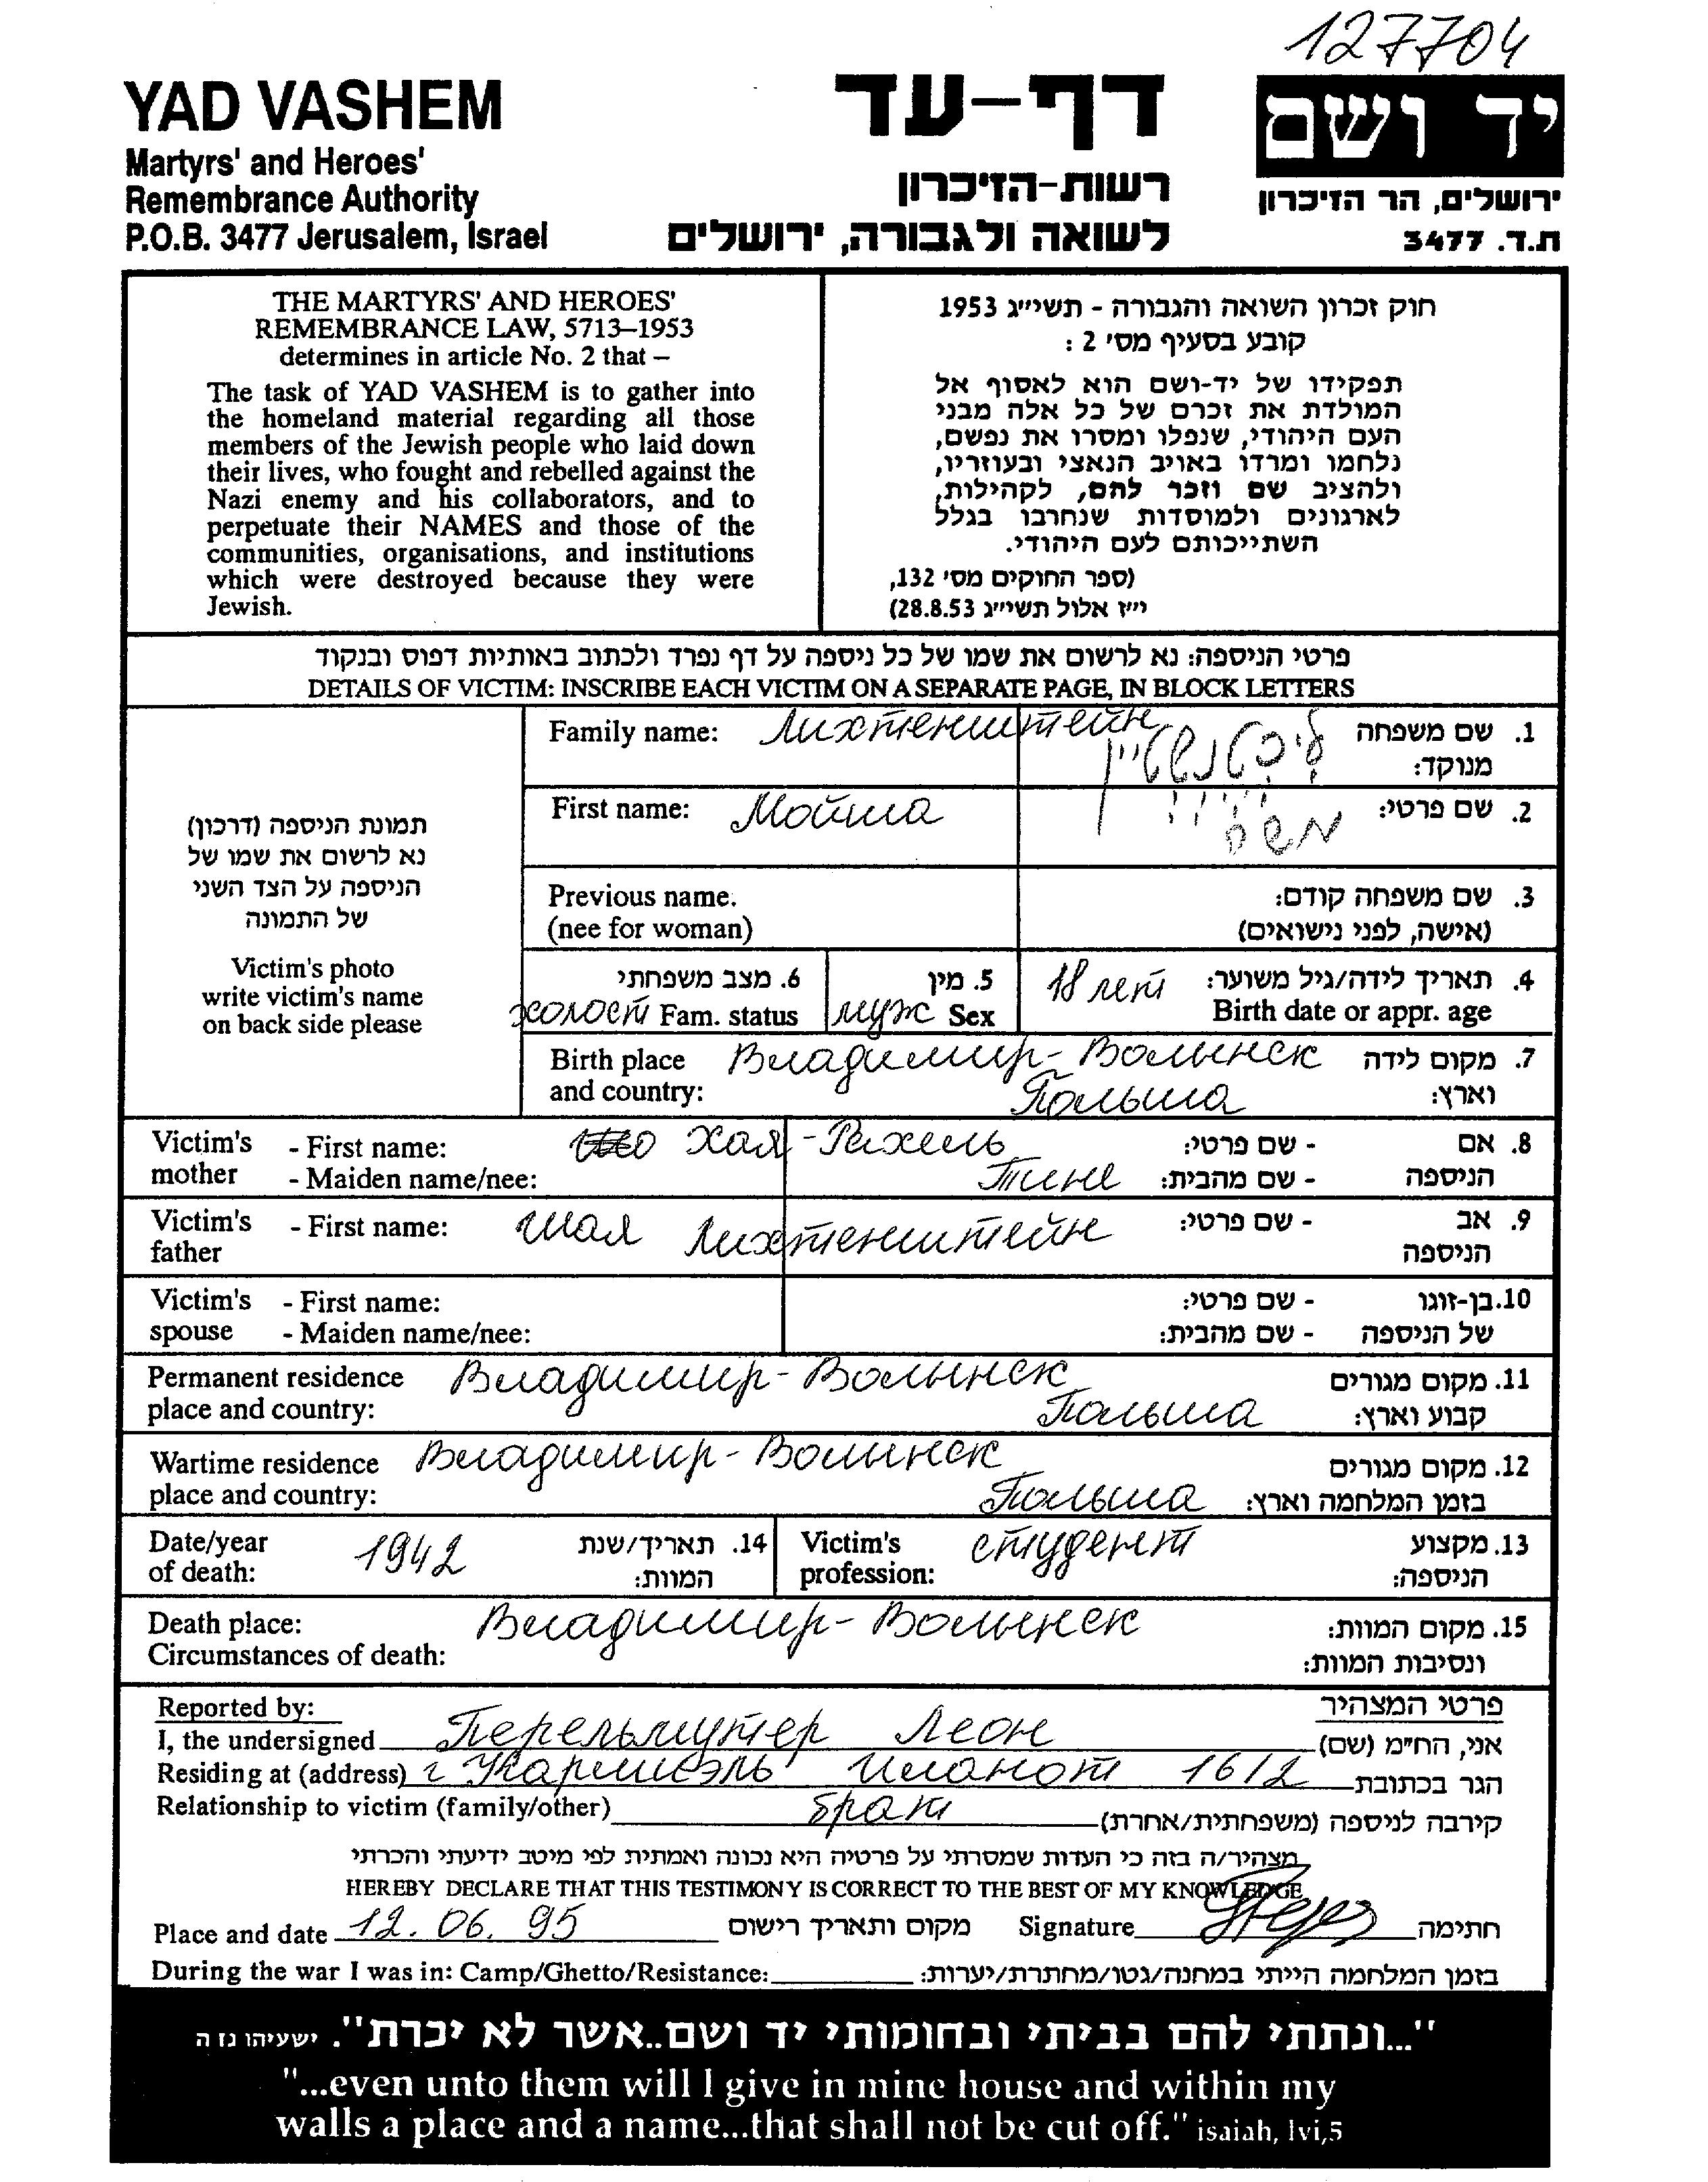 127704
YAD VASHEM
Martyrs' and Heroes'
Remembrance Authority
P.O.B. 3477 Jerusalem, Israel
דף-עד
רשות-הזיכרון
לשואה ולגבורה, ירושלים
יד ושם
ירושלים, הר הזיכרון
ת.ד. 3477
THE MARTYRS' AND HEROES'
REMEMBRANCE LAW, 5713–1953
determines in article No. 2 that –
The task of YAD VASHEM is to gather into
the homeland material regarding all those
members of the Jewish people who laid down
their lives, who fought and rebelled against the
Nazi enemy and his collaborators, and to
perpetuate their NAMES and those of the
communities, organisations, and institutions
which were destroyed because they were
Jewish.
חוק זכרון השואה והגבורה - תשי״ג 1953
קובע בסעיף מס' 2 :
תפקידו של יד-ושם הוא לאסוף אל
המולדת את זכרם של כל אלה מבני
העם היהודי, שנפלו ומסרו את נפשם,
נלחמו ומרדו באויב הנאצי ובעוזריו,
ולהציב שם וזכר להם, לקהילות,
לארגונים ולמוסדות שנחרבו בגלל
השתייכותם לעם היהודי.
(ספר החוקים מס' 132,
י״ז אלול תשי״ג 28.8.53)
פרטי הניספה: נא לרשום את שמו של כל ניספה על דף נפרד ולכתוב באותיות דפוס ובנקוד
DETAILS OF VICTIM: INSCRIBE EACH VICTIM ON A SEPARATE PAGE, IN BLOCK LETTERS
תמונת הניספה (דרכון)
נא לרשום את שמו של
הניספה על הצד השני
של התמונה
Victim's photo
write victim's name
on back side please
Family name: Лихтенштейн ליכטנשטיין 1. שם משפחה
מנוקד:
First name: Мойша משה 2. שם פרטי:
Previous name. 3. שם משפחה קודם:
(nee for woman) (אישה, לפני נישואים)
6. מצב משפחתי 5. מין 18 лет 4. תאריך לידה/גיל משוער:
холост Fam. status муж Sex Birth date or appr. age
Birth place Владимир-Волынск 7. מקום לידה
and country: Польша וארץ:
Victim's - First name: Хая-Рахель - שם פרטי: 8. אם
mother - Maiden name/nee: Тине - שם מהבית: הניספה
Victim's - First name: Шая Лихтенштейн - שם פרטי: 9. אב
father הניספה
Victim's - First name: - שם פרטי: 10.בן-זוגו
spouse - Maiden name/nee: - שם מהבית: של הניספה
Permanent residence Владимир-Волынск 11. מקום מגורים
place and country: Польша קבוע וארץ:
Wartime residence Владимир-Волинск 12. מקום מגורים
place and country: Польша בזמן המלחמה וארץ:
Date/year 1942 14. תאריך/שנת Victim's студент 13. מקצוע
of death: המוות: profession: הניספה:
Death place: Владимир-Волынск 15. מקום המוות:
Circumstances of death: ונסיבות המוות:
Reported by: פרטי המצהיר
I, the undersigned Перельмутер Леон אני, הח״מ (שם)
Residing at (address) г Кармиэль Иланот 16/2 הגר בכתובת
Relationship to victim (family/other) брат קירבה לניספה (משפחתית/אחרת)
מצהיר/ה בזה כי העדות שמסרתי על פרטיה היא נכונה ואמתית לפי מיטב ידיעתי והכרתי
HEREBY DECLARE THAT THIS TESTIMONY IS CORRECT TO THE BEST OF MY KNOWLEDGE
Place and date 12.06.95 מקום ותאריך רישום Signature חתימה
During the war I was in: Camp/Ghetto/Resistance: בזמן המלחמה הייתי במחנה/גטו/מחתרת/יערות:
"...ונתתי להם בביתי ובחומותי יד ושם..אשר לא יכרת". ישעיהו נו ה
"...even unto them will I give in mine house and within my
walls a place and a name...that shall not be cut off." isaiah, lvi,5